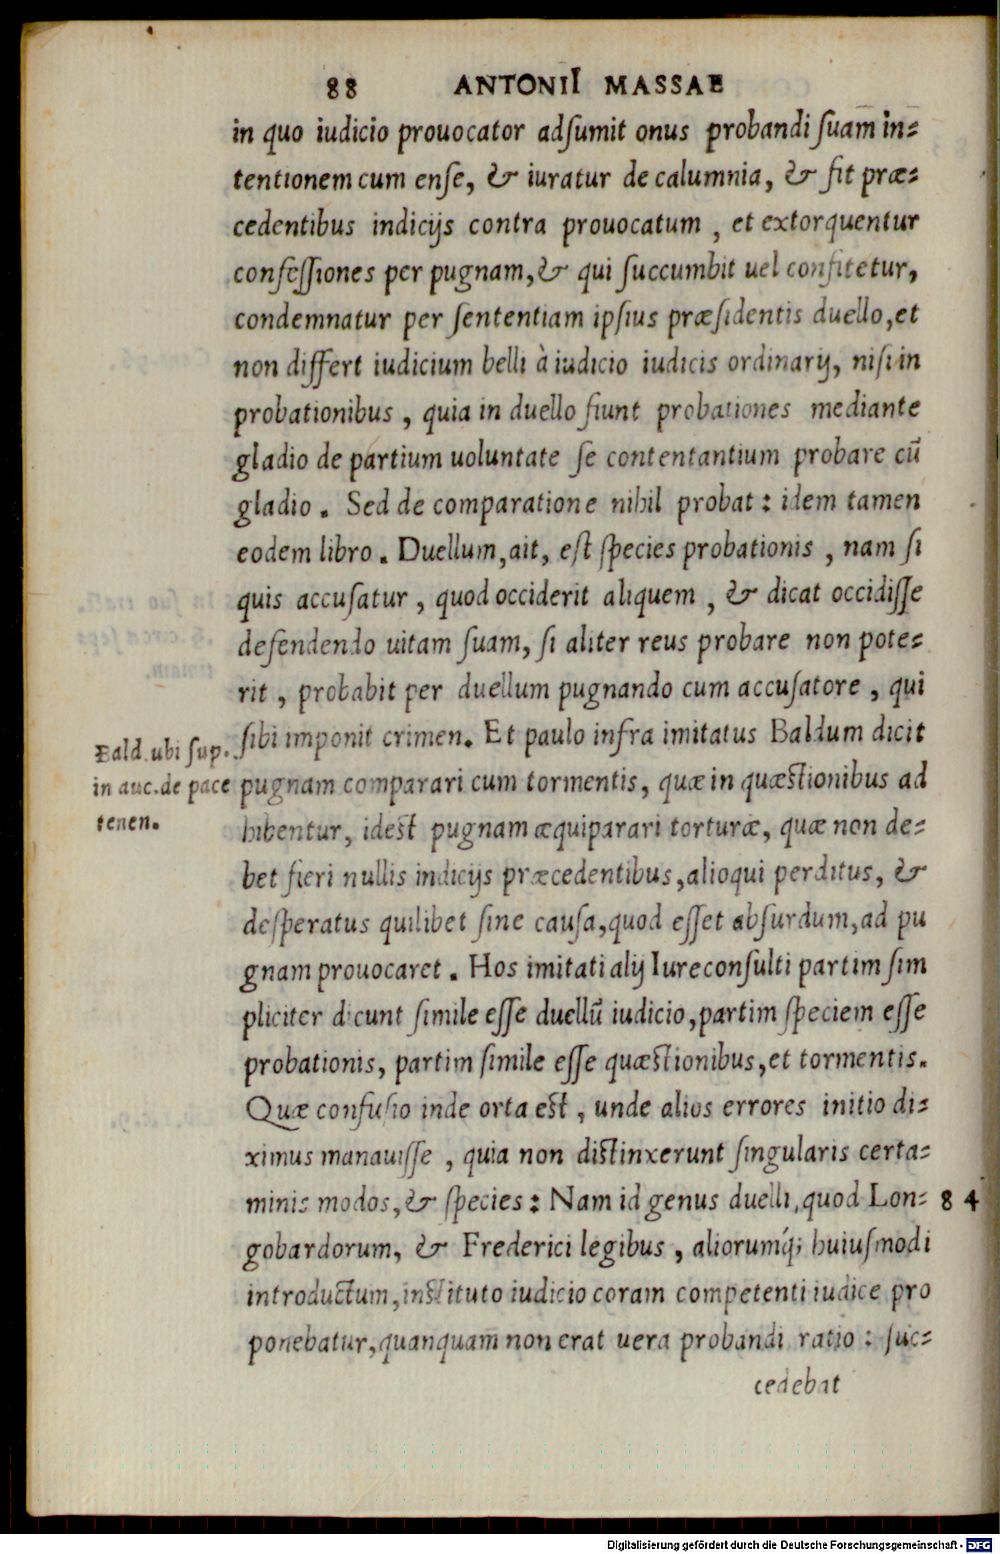 88 ANTONII MASSAE
in quo iudicio prouocator adsumit onus probandi suam in-
tentionem cum ense, & iuratur de calumnia, & fit præ-
cedentibus indicijs contra prouocatum , et extorquentur
confessiones per pugnam, & qui succumbit uel confitetur,
condemnatur per sententiam ipsius præsidentis duello, et
non differt iudicium belli à iudicio iudicis ordinarij, nisi in
probationibus , quia in duello fiunt probationes mediante
gladio de partium uoluntate se contentantium probare cū
gladio . Sed de comparatione nihil probat : idem tamen
eodem libro . Duellum, ait, est species probationis , nam si
quis accusatur , quod occiderit aliquem , & dicat occidisse
defendendo uitam suam, si aliter reus probare non pote-
rit , probabit per duellum pugnando cum accusatore , qui
sibi imponit crimen. Et paulo infra imitatus Baldum dicit
Bald. ubi sup.
in auc. de pace
tenen.
pugnam comparari cum tormentis, quæ in quæstionibus ad
hibentur, idest pugnam æquiparari torturæ, quæ non de-
bet fieri nullis indicijs præcedentibus, alioqui perditus, &
desperatus quilibet sine causa, quod esset absurdum, ad pu
gnam prouocaret . Hos imitati alij Iureconsulti partim sim
pliciter dicunt simile esse duellū iudicio, partim speciem esse
probationis, partim simile esse quæstionibus, et tormentis.
Quæ confusio inde orta est , unde alios errores initio di-
ximus manauisse , quia non distinxerunt singularis certa-
minis modos, & species : Nam id genus duelli, quod Lon- 84
gobardorum, & Frederici legibus , aliorumq́; huiusmodi
introductum, instituto iudicio coram competenti iudice pro
ponebatur, quanquam non erat uera probandi ratio : suc-
cedebat
Digitalisierung gefördert durch die Deutsche Forschungsgemeinschaft - DFG